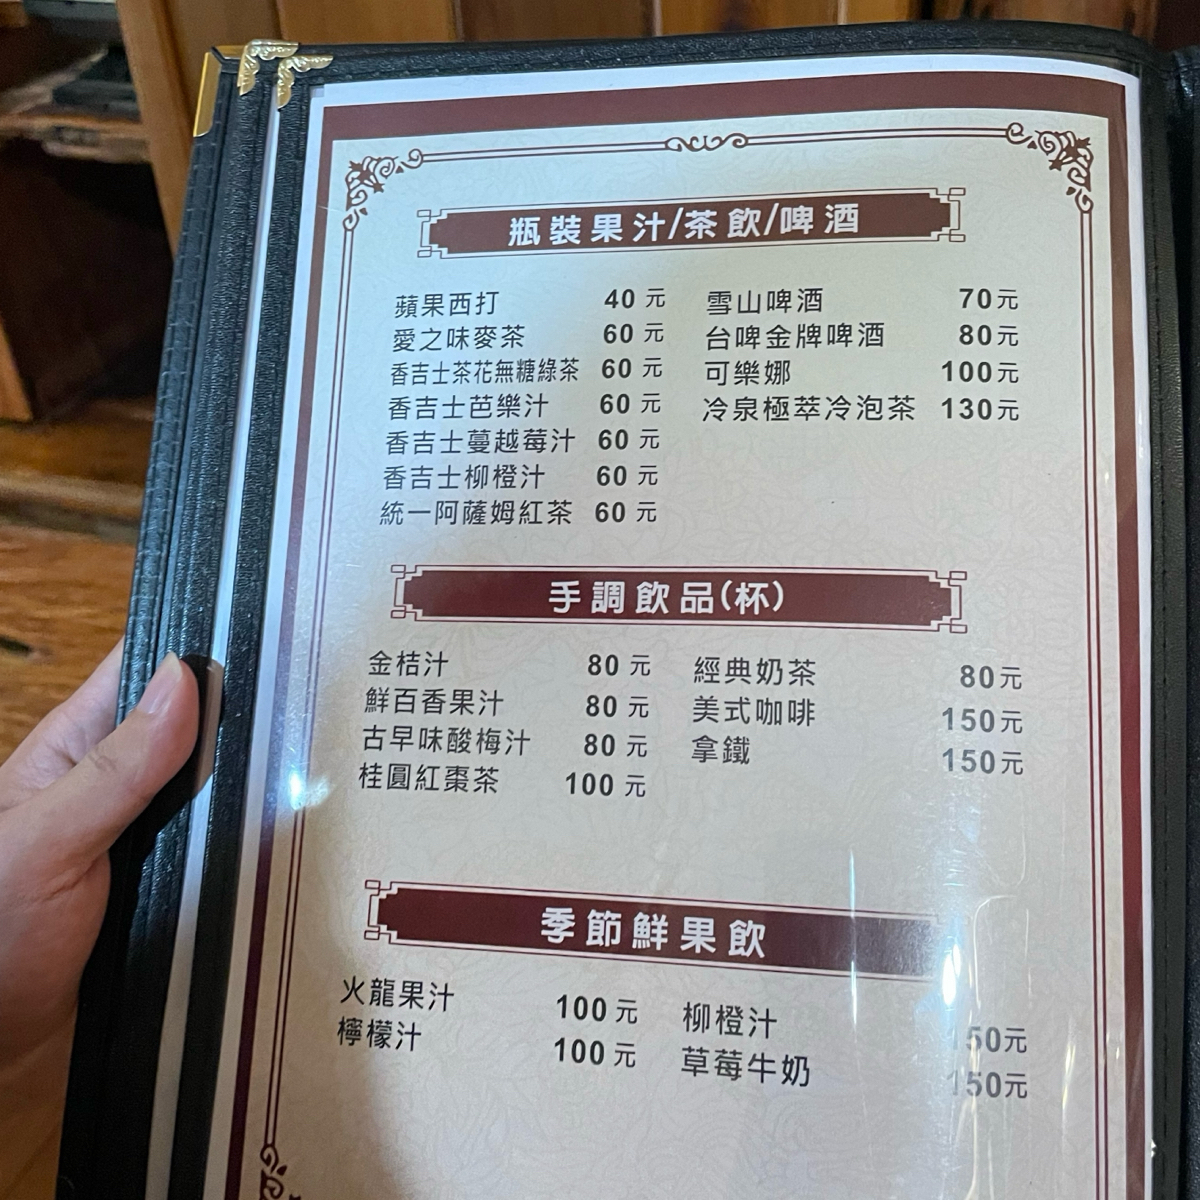 瓶裝果汁/茶飲/啤酒
蘋果西打 40元 雪山啤酒 70元
愛之味麥茶 60元 台啤金牌啤酒 80元
香吉士茶花無糖綠茶 60元 可樂娜 100元
香吉士芭樂汁 60元 冷泉極萃冷泡茶 130元
香吉士蔓越莓汁 60元
香吉士柳橙汁 60元
統一阿薩姆紅茶 60元
手調飲品(杯)
金桔汁 80元 經典奶茶 80元
鮮百香果汁 80元 美式咖啡 150元
古早味酸梅汁 80元 拿鐵 150元
桂圓紅棗茶 100元
季節鮮果飲
火龍果汁 100元 柳橙汁 150元
檸檬汁 100元 草莓牛奶 150元